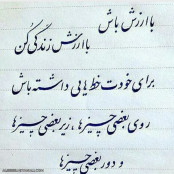 باارزش باش
باارزش زندگی کن
برای خودت خط‌هایی داشته باش
روی بعضی چیزها، زیر بعضی چیزها
و دور بعضی چیزها